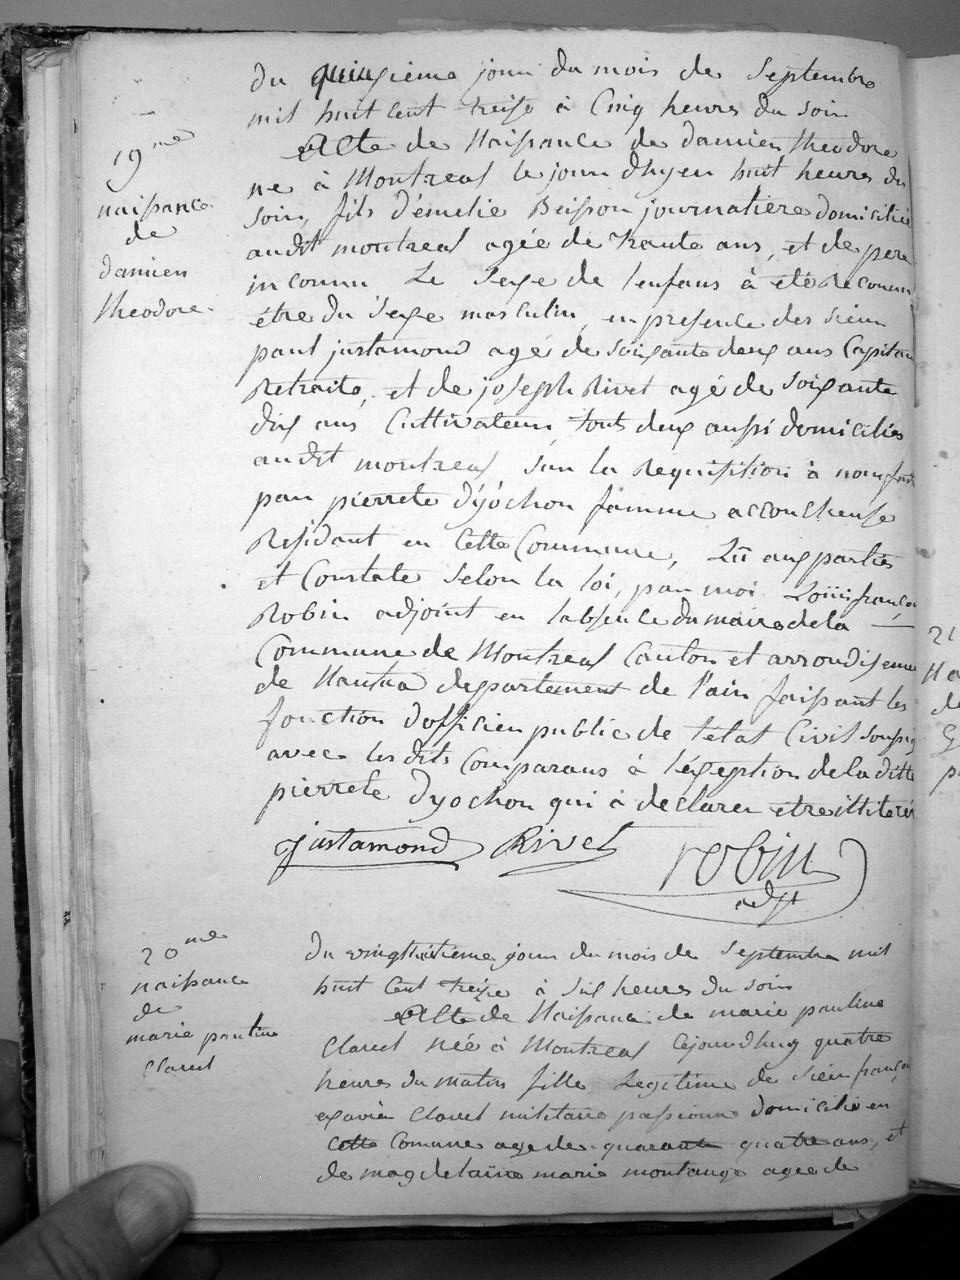 Du quinzieme jour du mois de Septembre
mil huit cent treise à Cinq heures du soir
19me
naissance
de
damien
theodore
Acte de Naissance de damien theodore
ne à Montreal le jour dhyer huit heures du
soir, fils d'émelie Beisson journaliere domicilié
audit montreal agée de trante ans, et de pere
inconnu Le Sexe de lenfans à été Reconnu
étre du Sexe masculin, en presence des sieur
paul justamond agé de soixante deux ans Capitain
Retraite, et de joseph Rivet agé de soixante
dix ans Cultivateur, touts deux aussi domiciliés
audit montreal, sur la Requisition à nous faite
par pierrete d'yochon famme accoucheuse
Residant en Cette Commune, Lû aux parties
et Constate Selon la loi, par moi Loüis françois
Robin adjoint en labsence du maire de la
Commune de Montreal Canton et arrondiseme
de Nantua departement de l'ain faissant les
fonction dofficier public de l'etat Civil soussig
avec les dits Comparans à l'exseption de la ditte
pierrete Dyochon qui à déclarer etre illiteré
justamond Rivet robin
adjt
20me
naissance
de
marie pauline
Claret
Du vingthuitieme jour du mois de Septembre mil
huit Cent treize à Six heures du soir
Acte de Naissance de marie pauline
Claret Née à Montreal Cejourdhuy quatre
heures du matin fille Legitime de Sieur françoi
exavié Claret militaire passionné domicilié en
Cette Comune age de quarante quatre ans, et
de magdelaine marie montange agée de